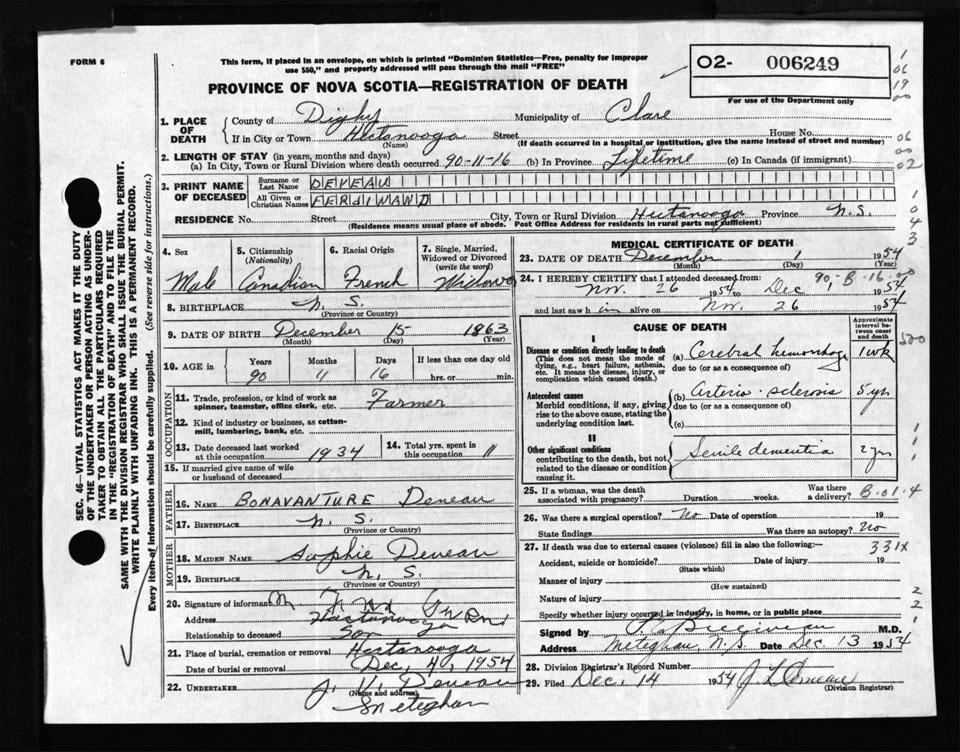 FORM 6
This form, if placed in an envelope, on which is printed "Dominion Statistics—Free, penalty for improper
use $50," and properly addressed will pass through the mail "FREE"
O2- 006249
For use of the Department only
PROVINCE OF NOVA SCOTIA—REGISTRATION OF DEATH
1. PLACE OF DEATH
County of Digby Municipality of Clare
If in City or Town Hectanooga Street House No.
(Name) (If death occurred in a hospital or institution, give the name instead of street and number)
2. LENGTH OF STAY (in years, months and days)
(a) In City, Town or Rural Division where death occurred 90-11-16 (b) In Province Lifetime (c) In Canada (if immigrant)
3. PRINT NAME OF DECEASED
Surname or Last Name DEVEAU
All Given or Christian Names FERDINAND
RESIDENCE No. Street City, Town or Rural Division Hectanooga Province N.S.
(Residence means usual place of abode. Post Office Address for residents in rural parts not sufficient)
4. Sex Male
5. Citizenship (Nationality) Canadian
6. Racial Origin French
7. Single, Married, Widowed or Divorced (write the word) Widower
8. BIRTHPLACE N. S.
(Province or Country)
9. DATE OF BIRTH December 15 1863
(Month) (Day) (Year)
10. AGE in Years 90 Months 11 Days 16 If less than one day old hrs. or min.
OCCUPATION
11. Trade, profession or kind of work as spinner, teamster, office clerk, etc. Farmer
12. Kind of industry or business, as cotton-mill, lumbering, bank, etc.
13. Date deceased last worked at this occupation 1934
14. Total yrs. spent in this occupation
15. If married give name of wife or husband of deceased
FATHER
16. NAME BONAVANTURE Deveau
17. BIRTHPLACE N. S.
(Province or Country)
MOTHER
18. MAIDEN NAME Sophie Deveau
19. BIRTHPLACE N. S.
(Province or Country)
20. Signature of informant
Address Hectanooga
Relationship to deceased Son
21. Place of burial, cremation or removal Hectanooga
Date of burial or removal Dec, 4, 1954
22. UNDERTAKER J. V. Deveau
(Name and address)
Meteghan
MEDICAL CERTIFICATE OF DEATH
23. DATE OF DEATH December 1 1954
(Month) (Day) (Year)
24. I HEREBY CERTIFY that I attended deceased from:
90-B-16-00
Nov. 26 1954 to Dec 1954
and last saw h im alive on Nov. 26 1954
CAUSE OF DEATH
Approximate interval between onset and death
I
Disease or condition directly leading to death (a) Cerebral hemorrhage 1 wk
This does not mean the mode of dying, e.g., heart failure, asthenia, etc. It means the disease, injury, or complication which caused death.
due to (or as a consequence of)
Antecedent causes (b) Arterio-sclerosis 5 yr
Morbid conditions, if any, giving rise to the above cause, stating the underlying condition last.
due to (or as a consequence of)
(c)
II
Other significant conditions Senile dementia 2 yrs
contributing to the death, but not related to the disease or condition causing it.
25. If a woman, was the death associated with pregnancy? Duration weeks. Was there a delivery? B-01-4
26. Was there a surgical operation? No Date of operation 19
State findings Was there an autopsy? No
27. If death was due to external causes (violence) fill in also the following:— 331X
Accident, suicide or homicide? Date of injury 19
(State which)
Manner of injury
(How sustained)
Nature of injury
Specify whether injury occurred in industry, in home, or in public place
Signed by M.D.
Address Meteghan, N.S. Date Dec 13 1954
28. Division Registrar's Record Number
29. Filed Dec. 14 1954 J L Deveau
(Division Registrar)
SEC. 46—VITAL STATISTICS ACT MAKES IT THE DUTY
OF THE UNDERTAKER OR PERSON ACTING AS UNDER-
TAKER TO OBTAIN ALL THE PARTICULARS REQUIRED
IN THE "REGISTRATION OF DEATH" AND TO FILE THE
SAME WITH THE DIVISION REGISTRAR WHO SHALL ISSUE THE BURIAL PERMIT.
WRITE PLAINLY WITH UNFADING INK. THIS IS A PERMANENT RECORD.
Every item of information should be carefully supplied. (See reverse side for instructions.)